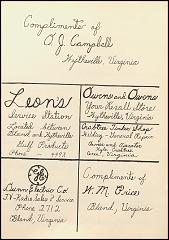 Compliments of
O. J. Campbell
Wytheville, Virginia
Leon's
Service Station
Located between
Bland and Wytheville
Gulf Products
Phone - 4493
Owens and Owens
Your Rexall Store
Wytheville, Virginia
Crabtree Tinker Shop
Welding - General Repair
Owner and Operator
Kyle Crabtree
Virginia
GE
Dunn Electric Co.
TV-Radio Sales & Service
Phone 2712
Bland, Virginia
Compliments of
W. M. Price
Bland, Virginia